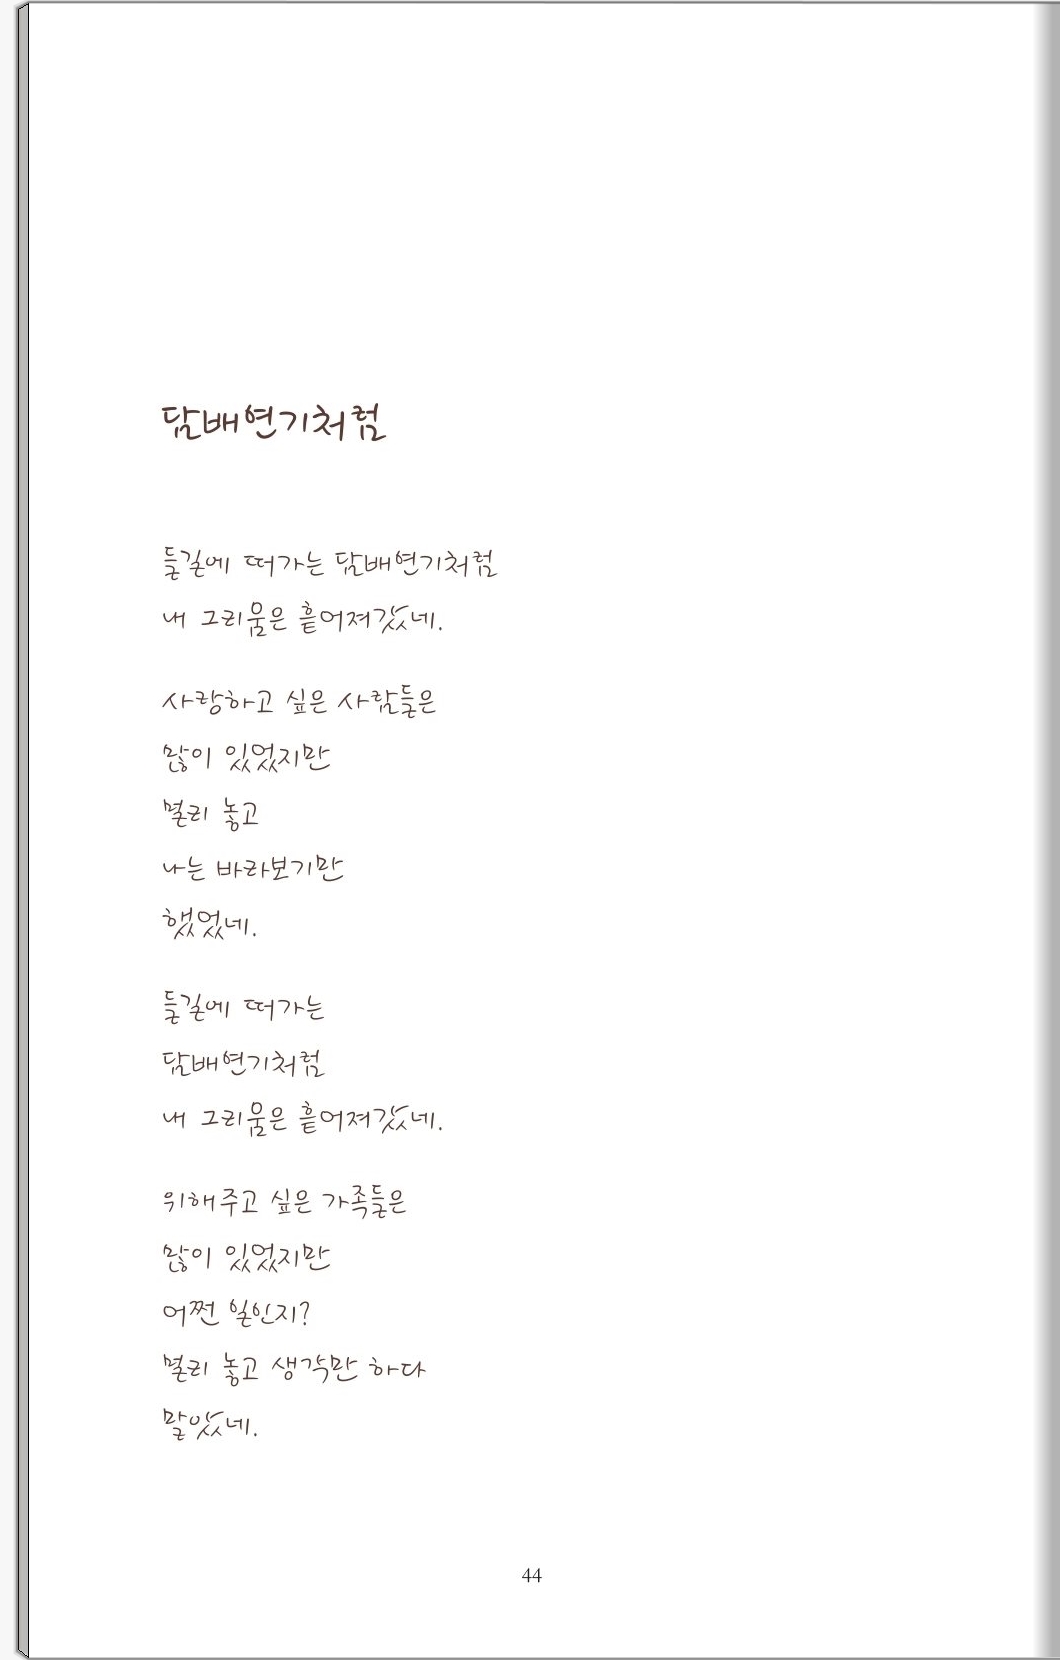 담배연기처럼
들길에 떠가는 담배연기처럼
내 그리움은 흩어져갔네.
사랑하고 싶은 사람들은
많이 있었지만
멀리 놓고
나는 바라보기만
했었네.
들길에 떠가는
담배연기처럼
내 그리움은 흩어져갔네.
위해주고 싶은 가족들은
많이 있었지만
어쩐 일인지?
멀리 놓고 생각만 하다
말았네.
44